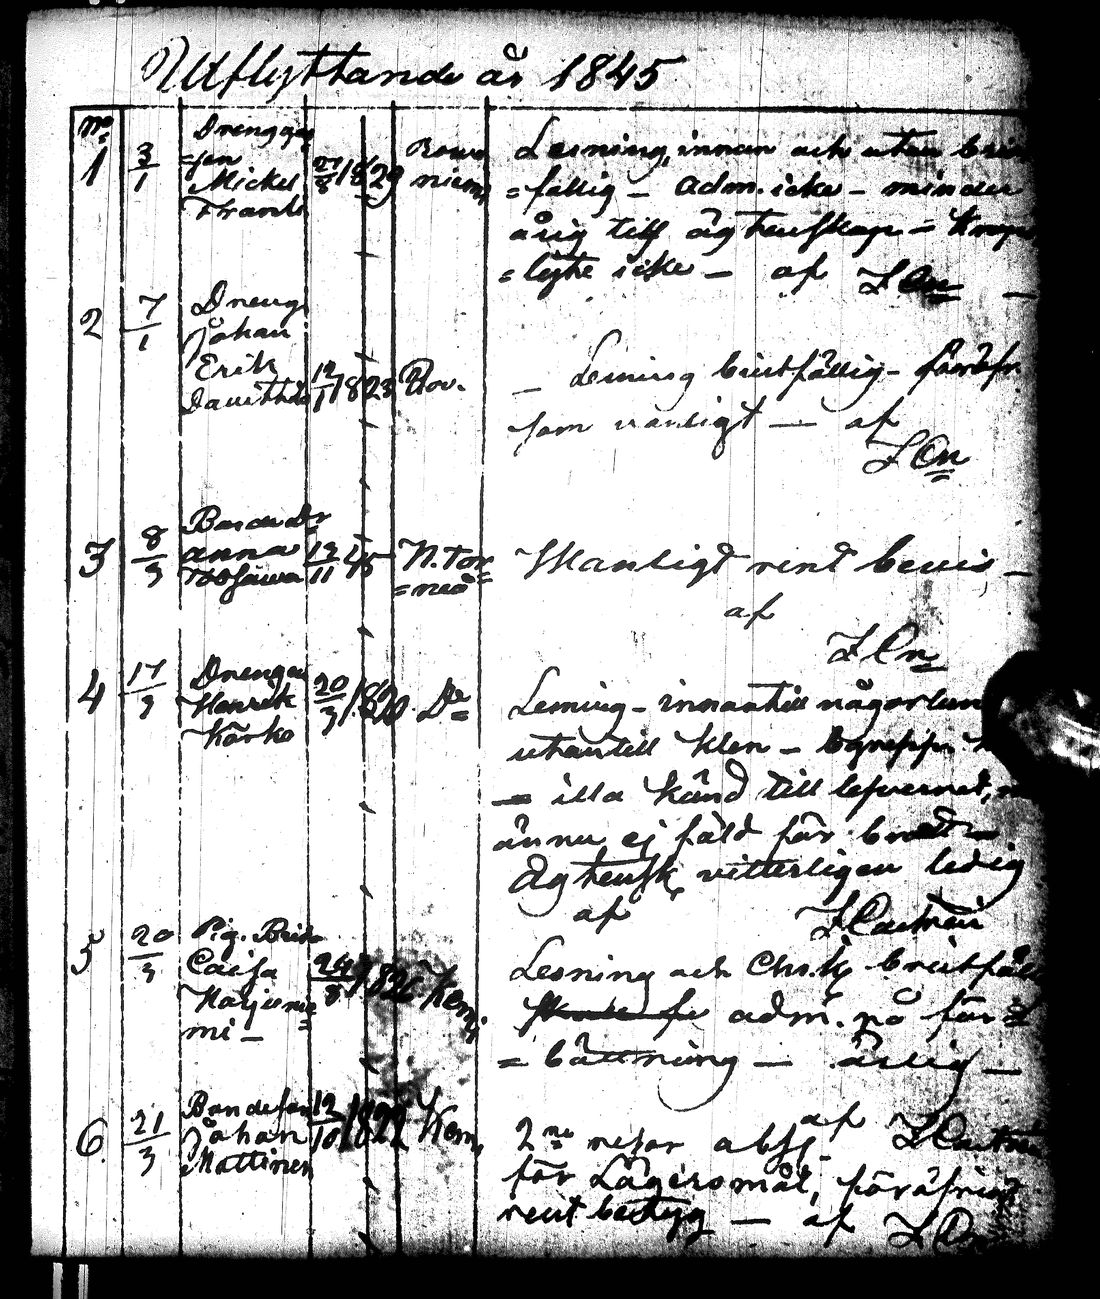 Utflyttande år 1845
No
1 3/1 Drengen
Mickel
Frants
27/8 1829
Rova
niemi
Lesning, innan och utan brist
=fällig — adm. icke — minder
årig till ägtenskap —
icke — af
2 7/1 Dreng
Johan
Erik
12/1 1823 Rov.
— Lesning bristfällig — föröfr.
som vanligt — af
3 8/3 Bonde Dr
Anna
12/11 45
N. Tor
=neå
Wanligt rent bevis —
af
4 17/3 Drengen
Henrik
Körkö
20/3 1820. Do
Lesning — innantill någorlun
utantill klen — begrepp
— illa känd till lefvernet,
ännu ej fäld för brott —
Ägtensk. vitterligen ledig
af
J Castrén
5 20/3 Pig. Brita
Caisa
Karjune
mi —
24/8 1826 Kemi
Lesning och Chr.k. bristfäll
adm. på för
=bättring — årlig —
af J Castrén
6. 21/3 Bondeson
Johan
Mattinen
12/10 1822 Kemi
2ne resor abs.
för Lägersmål, föröfrigt
rent betyg — af